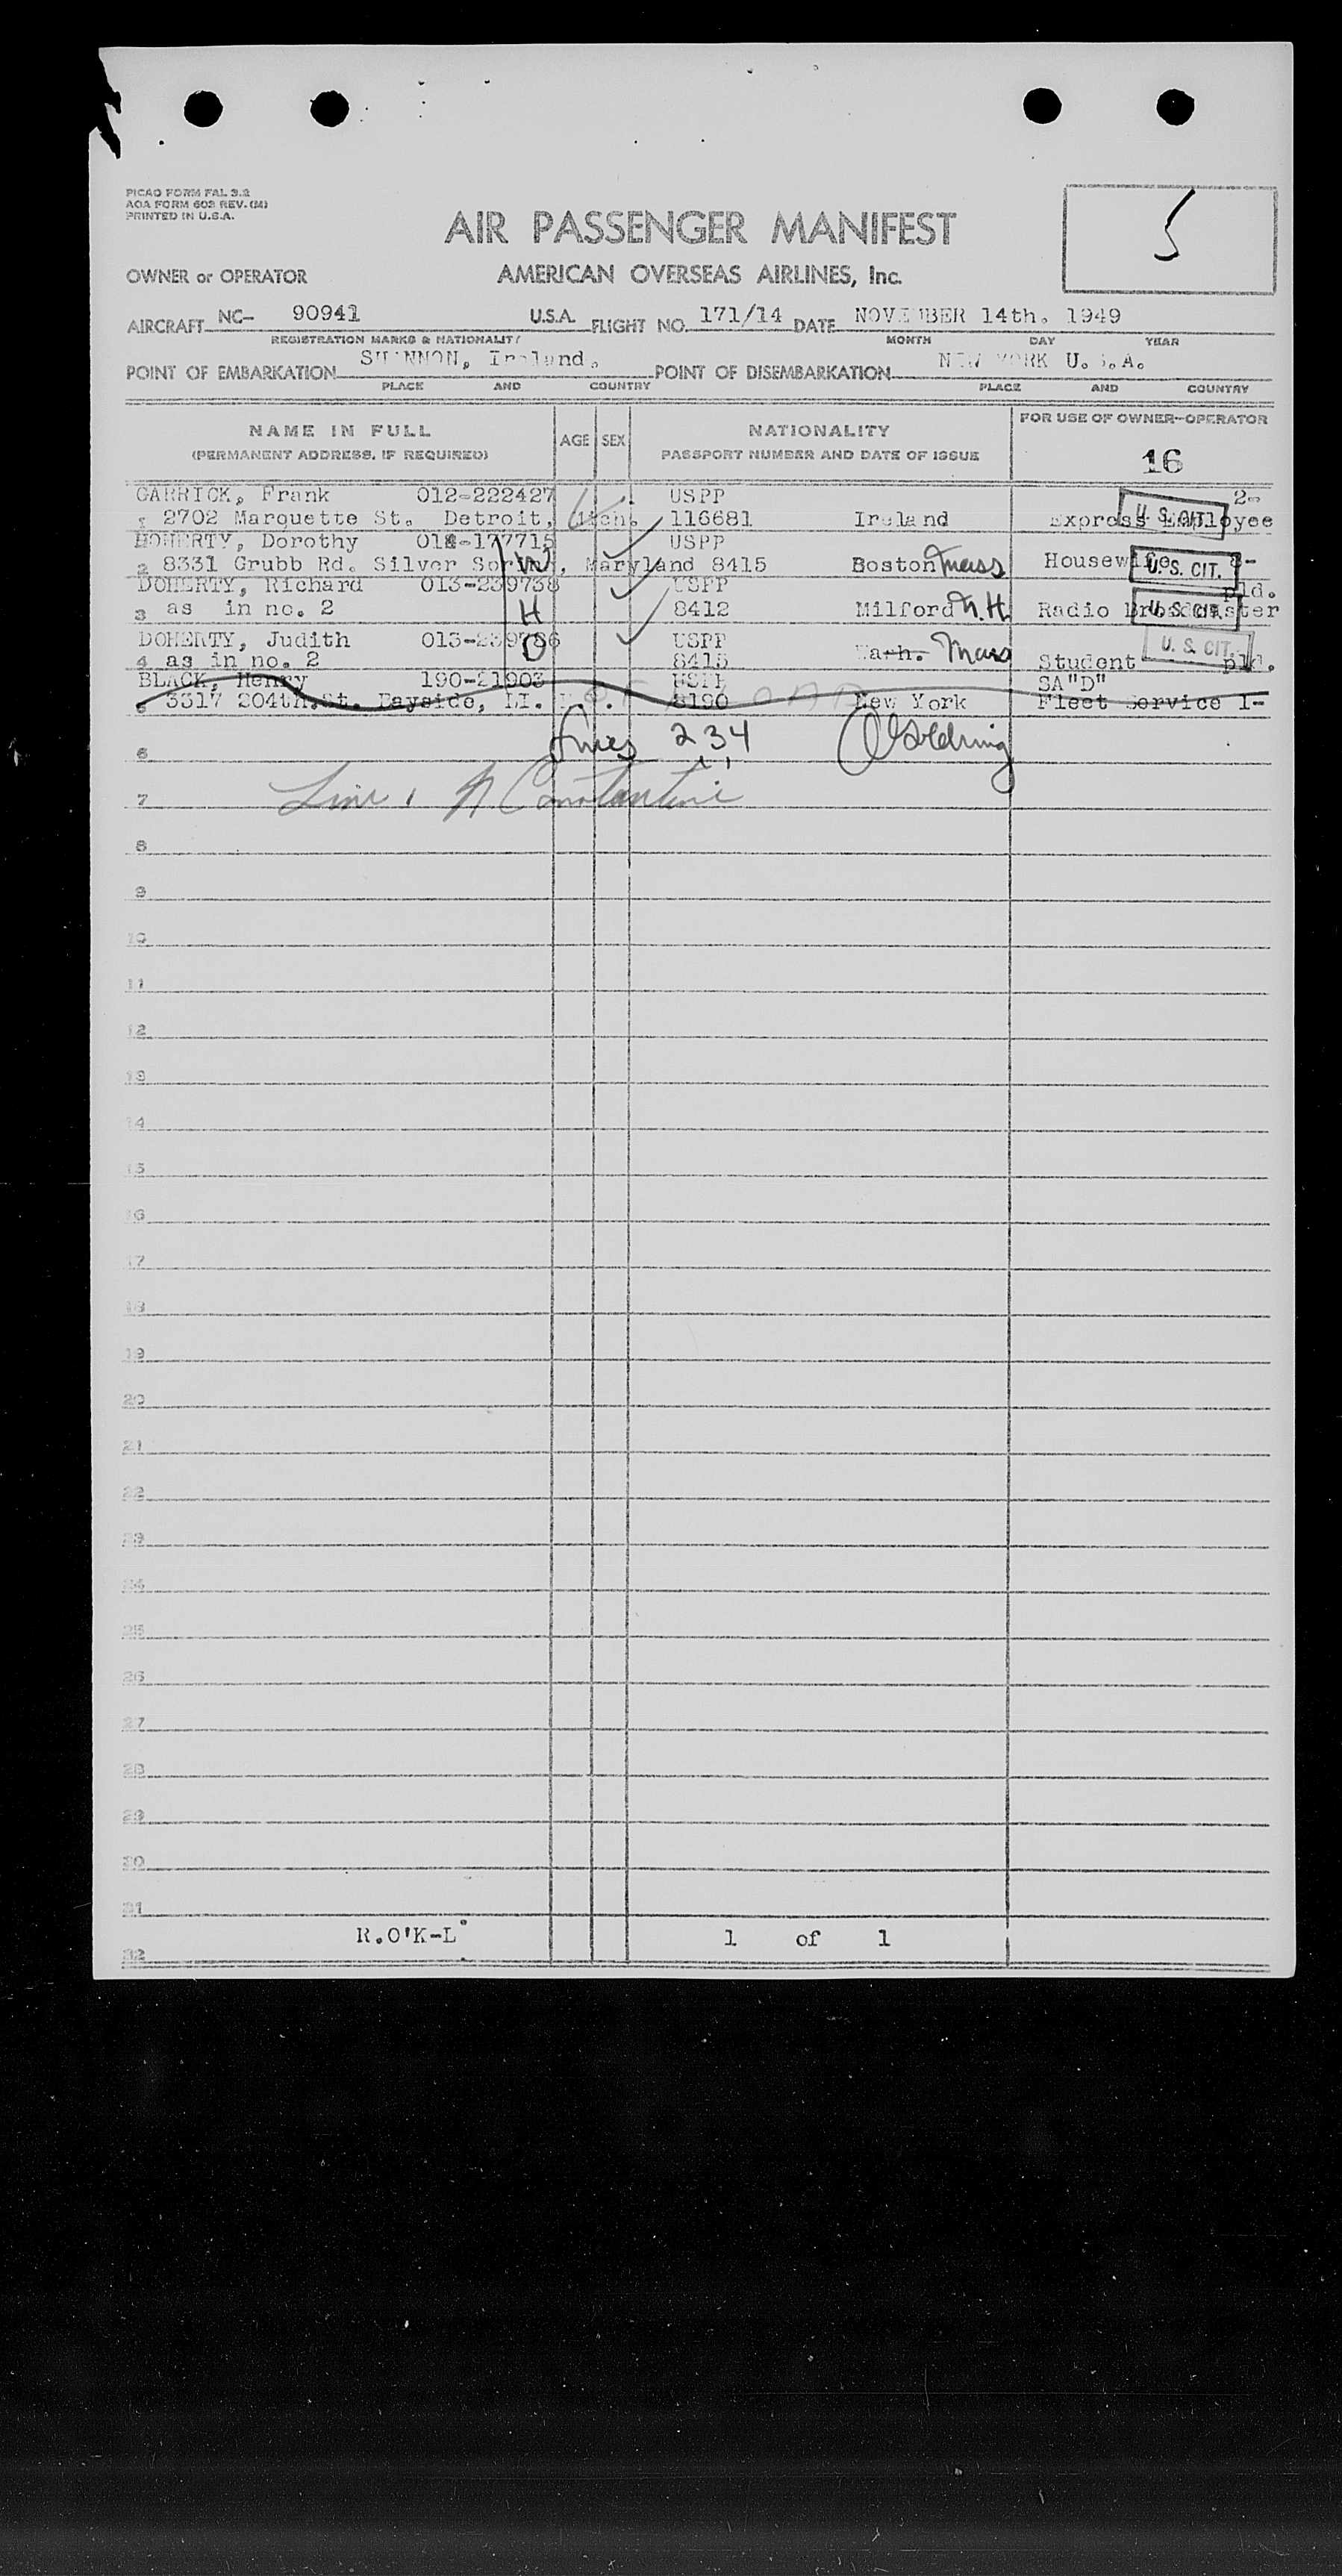 PICAO FORM FAL 3.2
AOA FORM 603 REV. (M)
PRINTED IN U.S.A.
5
AIR PASSENGER MANIFEST
OWNER or OPERATOR AMERICAN OVERSEAS AIRLINES, Inc.
AIRCRAFT NC- 90941 U.S.A. FLIGHT NO. 171/14 DATE NOVEMBER 14th. 1949
REGISTRATION MARKS & NATIONALITY MONTH DAY YEAR
POINT OF EMBARKATION SHANNON, Ireland. POINT OF DISEMBARKATION NEW YORK U.S.A.
PLACE AND COUNTRY PLACE AND COUNTRY
NAME IN FULL AGE SEX NATIONALITY FOR USE OF OWNER-OPERATOR
(PERMANENT ADDRESS, IF REQUIRED) PASSPORT NUMBER AND DATE OF ISSUE 16
GARRICK, Frank 012-222427 USPP 2-
1 2702 Marquette St. Detroit, Mich. 116681 Ireland Express Employee U.S. CIT.
DOHERTY, Dorothy USPP
2 8331 Grubb Rd. Silver Spring, W Maryland 8415 Boston Mass Housewife U.S. CIT.
DOHERTY, Richard 013-239738 USPP pld.
3 as in no. 2 H 8412 Milford N.H Radio Broadcaster U.S. CIT.
DOHERTY, Judith 013-239786 USPP
4 as in no. 2 D 8413 Mass Student U. S. CIT. pld.
BLACK, Henry 190-21903 USPP SA"D"
5 3317 204th.St. Bayside, LI. N.Y. 8190 New York Fleet Service 1-
6 Lines 2 3 4 Goldring
7 Line 1 N Constantine
8
9
10
11
12
13
14
15
16
17
18
19
20
21
22
23
24
25
26
27
28
29
30
31
32 R.O'K-L 1 of 1